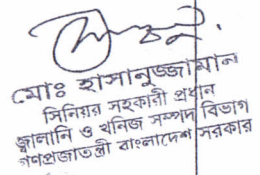 মোঃ হাসানুজ্জামান
সিনিয়র সহকারী প্রধান
জ্বালানি ও খনিজ সম্পদ বিভাগ
গণপ্রজাতন্ত্রী বাংলাদেশ সরকার